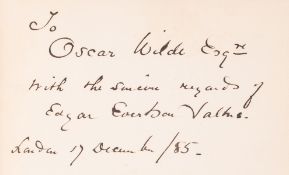 To
Oscar Wilde Esqre
with the sincere regards of
Edgar Evertson Saltus.
London 17 December /85-